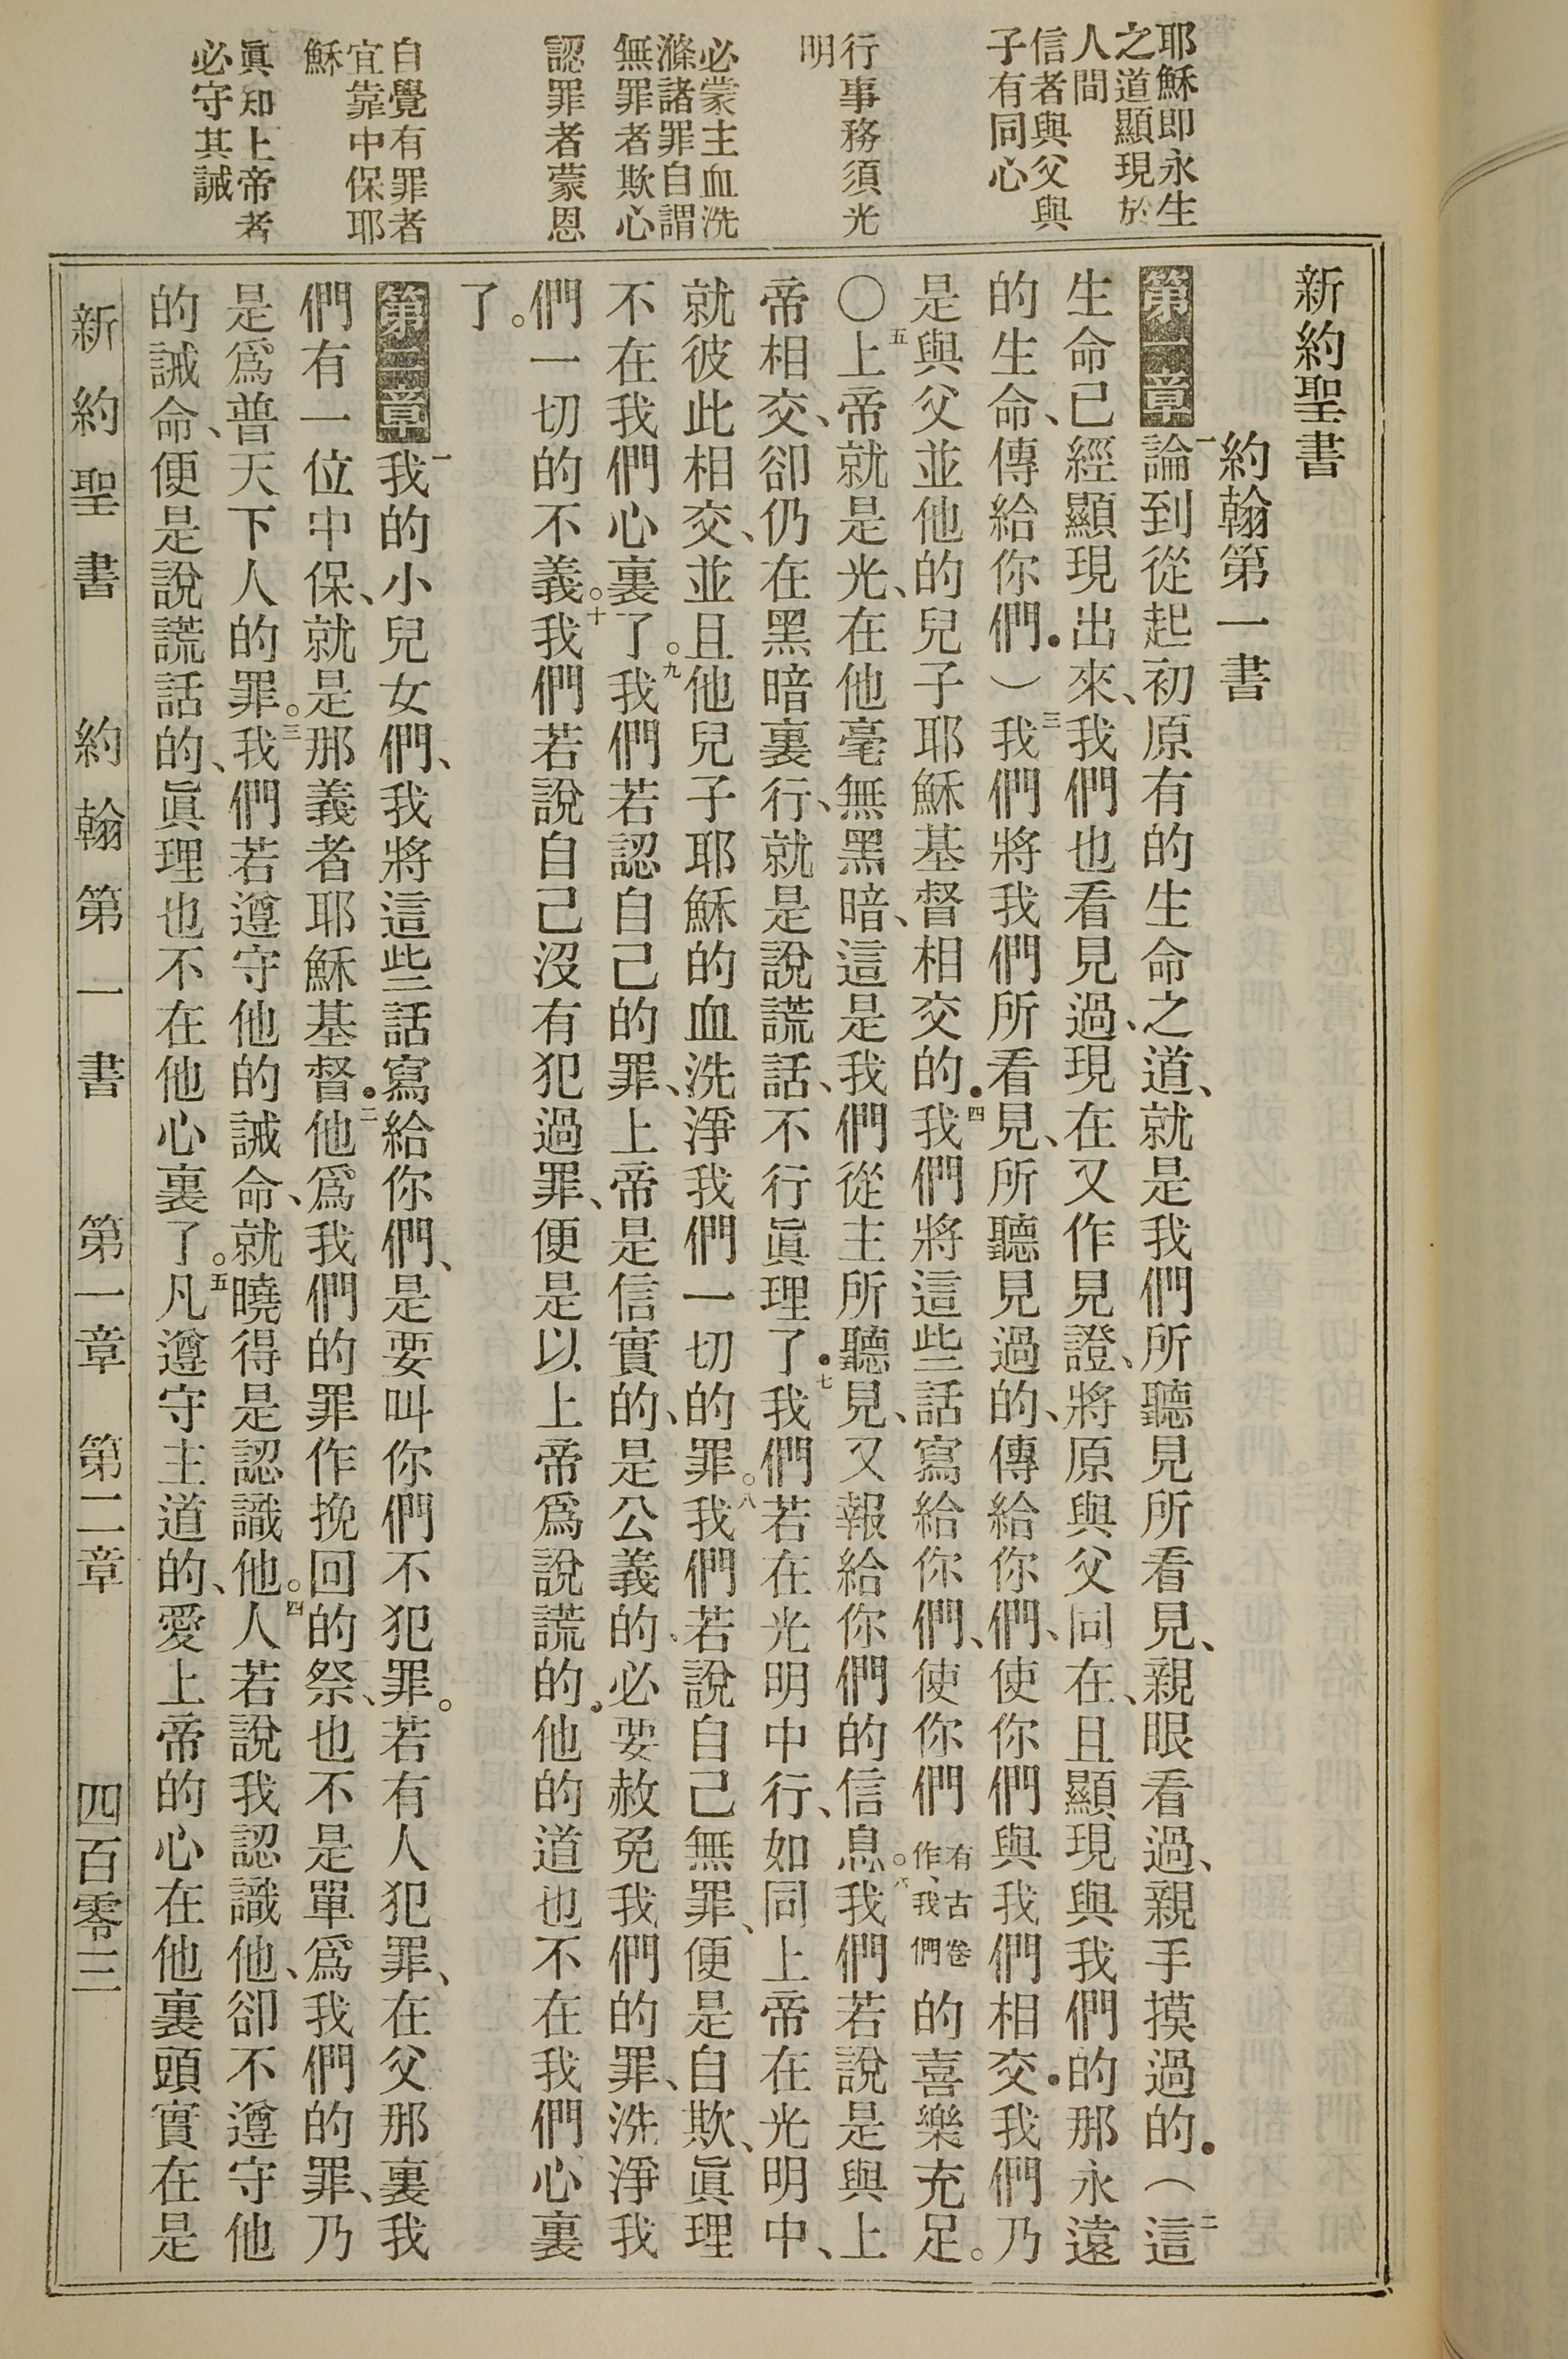 耶穌即永生
之道顯現於
人間
信者與父與
子有同心
行事務須光
明
必蒙主血洗
滌諸罪自謂
無罪者欺心
認罪者蒙恩
自覺有罪者
宜靠中保耶
穌
眞知上帝者
必守其誡
新約聖書
約翰第一書
第一章 一論到從起初原有的生命之道、就是我們所聽見所看見、親眼看過、親手摸過的．（二這
生命已經顯現出來、我們也看見過、現在又作見證、將原與父同在、且顯現與我們的那永遠
的生命、傳給你們．）三我們將我們所看見、所聽見過的、傳給你們、使你們與我們相交．我們乃
是與父並他的兒子耶穌基督相交的．四我們將這些話寫給你們、使你們有古卷作、我們的喜樂充足。
〇五上帝就是光、在他毫無黑暗、這是我們從主所聽見、又報給你們的信息。六我們若說是與上
帝相交、卻仍在黑暗裏行、就是說謊話、不行眞理了．七我們若在光明中行、如同上帝在光明中、
就彼此相交、並且他兒子耶穌的血洗淨我們一切的罪。八我們若說自己無罪、便是自欺、眞理
不在我們心裏了。九我們若認自己的罪、上帝是信實的、是公義的、必要赦免我們的罪、洗淨我
們一切的不義。十我們若說自己沒有犯過罪、便是以上帝爲說謊的．他的道也不在我們心裏
了。
第二章 一我的小兒女們、我將這些話寫給你們、是要叫你們不犯罪。若有人犯罪、在父那裏我
們有一位中保、就是那義者耶穌基督．二他爲我們的罪作挽回的祭、也不是單爲我們的罪、乃
是爲普天下人的罪。三我們若遵守他的誡命、就曉得是認識他。四人若說我認識他、卻不遵守他
的誡命、便是說謊話的、眞理也不在他心裏了。五凡遵守主道的、愛上帝的心在他裏頭實在是
新約聖書 約翰第一書 第一章 第二章 四百零三